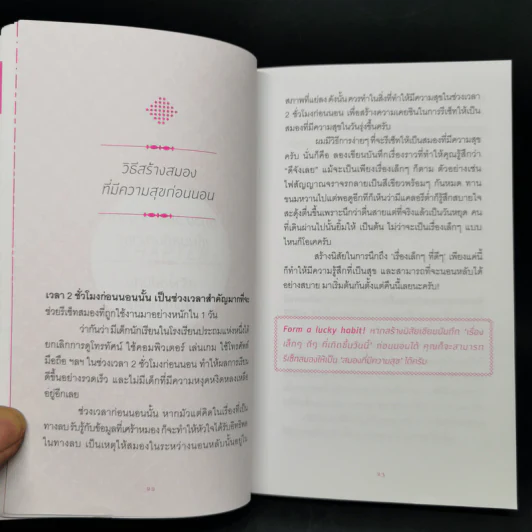 วิธีสร้างสมอง
ที่มีความสุขก่อนนอน
เวลา 2 ชั่วโมงก่อนนอนนั้น เป็นช่วงเวลาสำคัญมากที่จะ
ช่วยรีเซ็ทสมองที่ถูกใช้งานมาอย่างหนักใน 1 วัน
ว่ากันว่า มีเด็กนักเรียนในโรงเรียนประถมแห่งหนึ่งได้
ยกเลิกการดูโทรทัศน์ ใช้คอมพิวเตอร์ เล่นเกม ใช้โทรศัพท์
มือถือ ฯลฯ ในช่วงเวลา 2 ชั่วโมงก่อนนอน ทำให้ผลการเรียน
ดีขึ้นอย่างรวดเร็ว และไม่มีเด็กที่มีความหงุดหงิดหลงเหลือ
อยู่อีกเลย
ช่วงเวลาก่อนนอนนั้น หากมัวแต่คิดในเรื่องที่เป็น
ทางลบ รับรู้กับข้อมูลที่เศร้าหมอง ก็จะทำให้หัวใจได้รับอิทธิพล
ในทางลบ เป็นเหตุให้สมองในระหว่างนอนหลับนั้นอยู่ใน
สภาพที่แย่ลง ดังนั้น ควรทำในสิ่งที่ทำให้มีความสุขในช่วงเวลา
2 ชั่วโมงก่อนนอน เพื่อสร้างความเคยชินในการรีเซ็ทให้เป็น
สมองที่มีความสุขในวันรุ่งขึ้นครับ
ผมมีวิธีการง่ายๆ ที่จะรีเซ็ทให้เป็นสมองที่มีความสุข
ครับ นั่นก็คือ ลองเขียนบันทึกเรื่องราวที่ทำให้คุณรู้สึกว่า
"ดีจังเลย" แม้จะเป็นเพียงเรื่องเล็กๆ ก็ตาม ตัวอย่างเช่น
ไฟสัญญาณจราจรกลายเป็นสีเขียวพร้อมๆ กันหมด ทาน
ขนมหวานไปแต่พอดูอีกทีก็เห็นว่ามีแคลอรีต่ำก็รู้สึกสบายใจ
สะดุ้งตื่นขึ้นเพราะนึกว่าตื่นสายแต่ที่จริงแล้วเป็นวันหยุด คน
ที่เดินผ่านไปนั้นยิ้มให้ เป็นต้น ไม่ว่าจะเป็นเรื่องเล็กๆ แบบ
ไหนก็โอเคครับ
สร้างนิสัยในการนึกถึง 'เรื่องเล็กๆ ที่ดีๆ' เพียงแค่นี้
ก็ทำให้มีความรู้สึกที่เป็นสุข และสามารถที่จะนอนหลับได้
อย่างสบาย มาเริ่มต้นกันตั้งแต่คืนนี้เลยนะครับ!
Form a lucky habit! หากสร้างนิสัยเขียนบันทึก 'เรื่อง
เล็กๆ ดีๆ ที่เกิดขึ้นวันนี้' ก่อนนอนได้ คุณก็จะสามารถ
รีเซ็ทสมองให้เป็น 'สมองที่มีความสุข' ได้ครับ